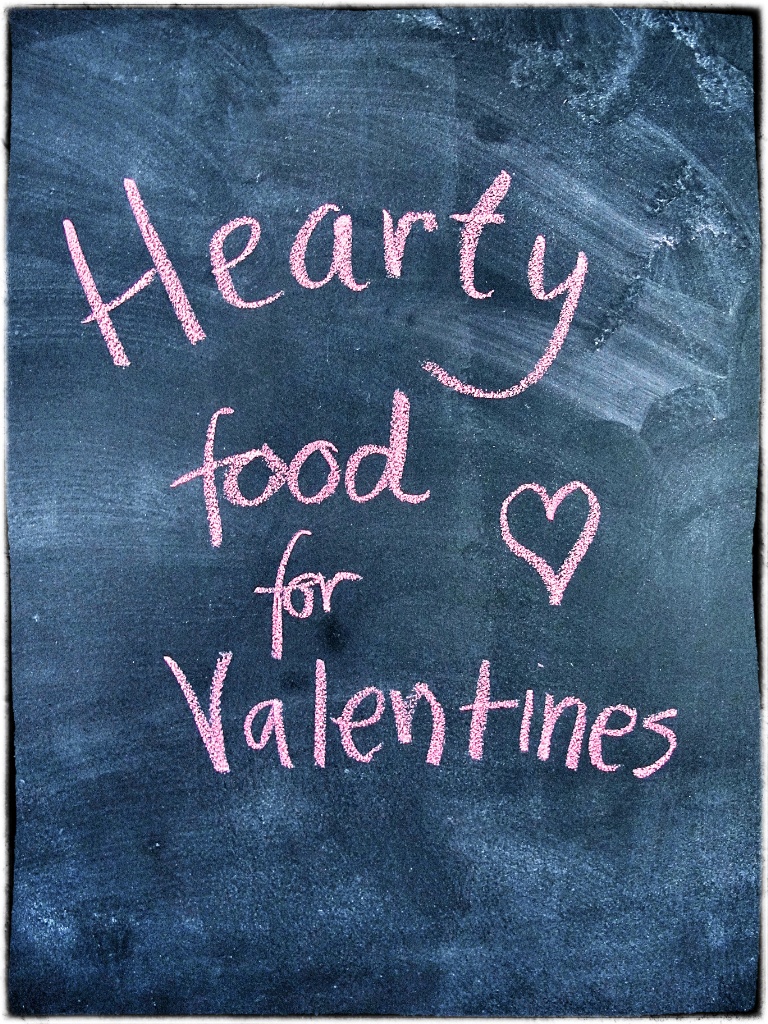 Hearty
food
for
Valentines